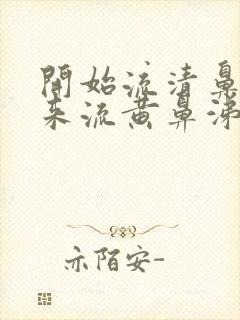 開始流清鼻
来流黄鼻涕
亦陌安-